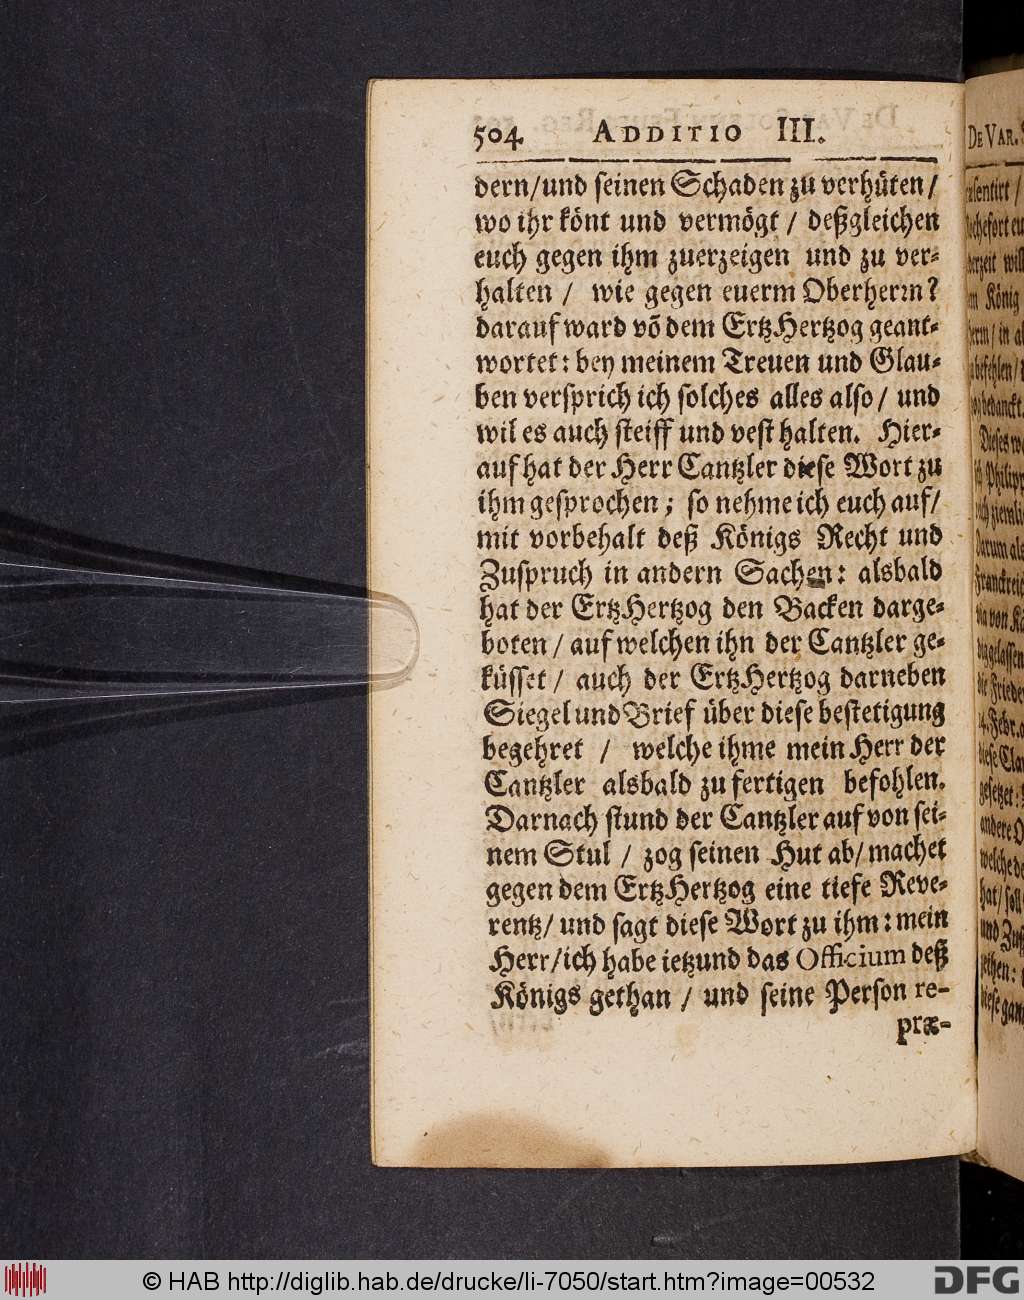 504. ADDITIO III.
dern/und seinen Schaden zu verhüten/
wo ihr könt und vermögt / deßgleichen
euch gegen ihm zuerzeigen und zu ver-
halten / wie gegen euerm Oberherrn?
darauf ward võ dem ErtzHertzog geant-
wortet: bey meinem Treuen und Glau-
ben versprich ich solches alles also/ und
wil es auch steiff und vest halten. Hier-
auf hat der Herr Cantzler diese Wort zu
ihm gesprochen; so nehme ich euch auf/
mit vorbehalt deß Königs Recht und
Zuspruch in andern Sachen: alsbald
hat der ErtzHertzog den Backen darge-
boten / auf welchen ihn der Cantzler ge-
küsset / auch der ErtzHertzog darneben
Siegel und Brief über diese bestetigung
begehret / welche ihme mein Herr der
Cantzler alsbald zu fertigen befohlen.
Darnach stund der Cantzler auf von sei-
nem Stul / zog seinen Hut ab/ machet
gegen dem ErtzHertzog eine tiefe Reve-
rentz/ und sagt diese Wort zu ihm: mein
Herr/ich habe ietzund das Officium deß
Königs gethan / und seine Person re-
præ-
DE VAR.
© HAB http://diglib.hab.de/drucke/li-7050/start.htm?image=00532
DFG